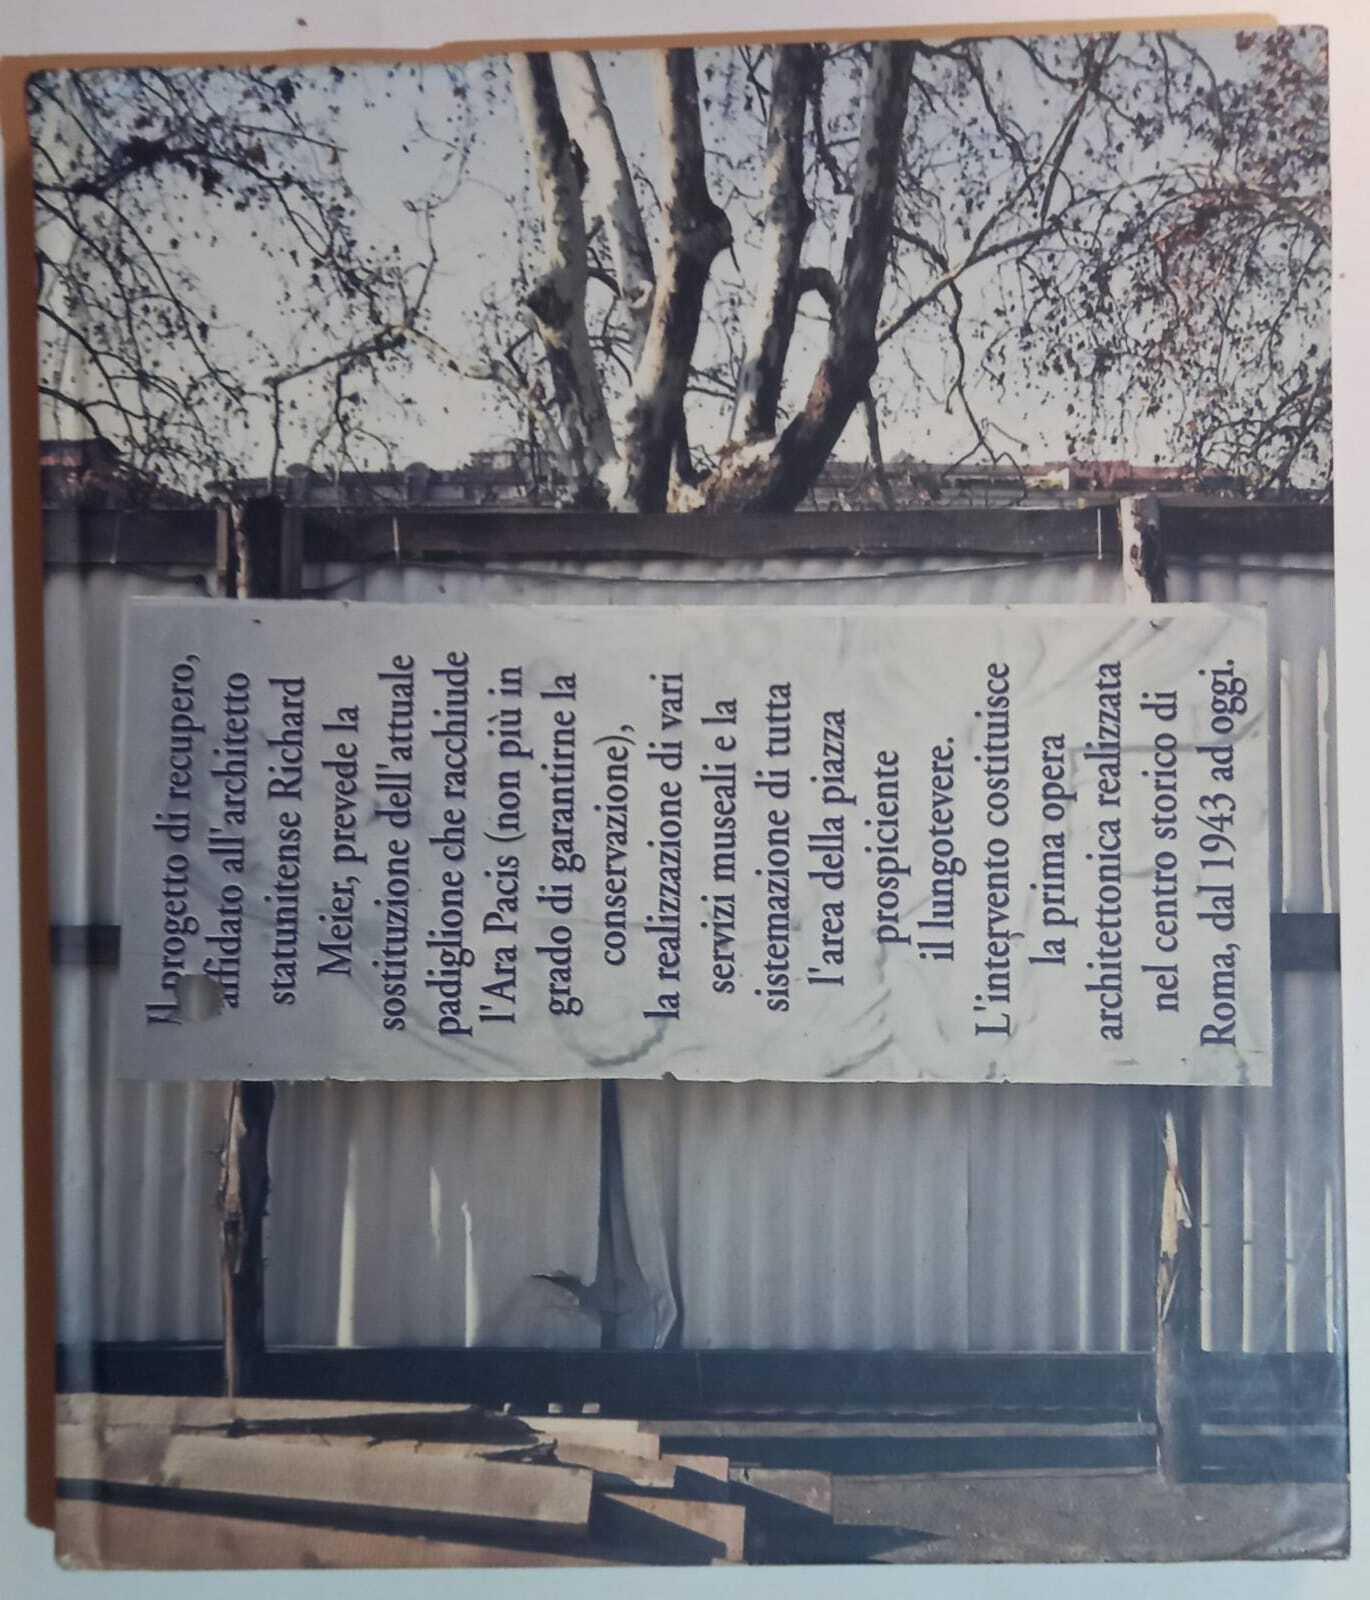 Il progetto di recupero,
affidato all'architetto
statunitense Richard
Meier, prevede la
sostituzione dell'attuale
padiglione che racchiude
l'Ara Pacis (non più in
grado di garantirne la
conservazione),
la realizzazione di vari
servizi museali e la
sistemazione di tutta
l'area della piazza
prospiciente
il lungotevere.
L'intervento costituisce
la prima opera
architettonica realizzata
nel centro storico di
Roma, dal 1943 ad oggi.